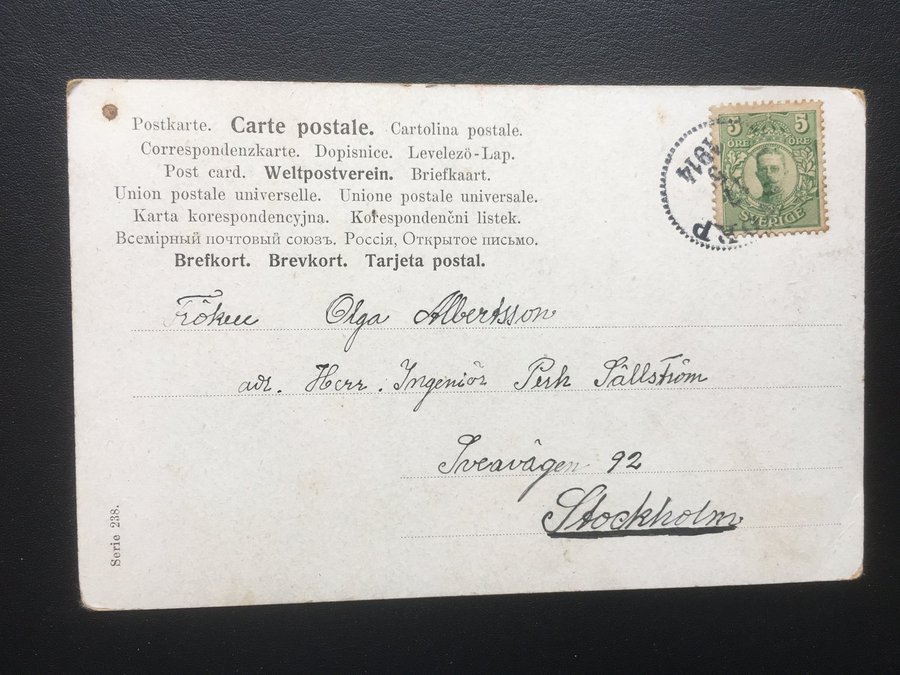 Postkarte. Carte postale. Cartolina postale.
Correspondenzkarte. Dopisnice. Levelezö-Lap.
Post card. Weltpostverein. Briefkaart.
Union postale universelle. Unione postale universale.
Karta korespondencyjna. Korespondenčni listek.
Всемірный почтовый союзъ. Россія, Открытое письмо.
Brefkort. Brevkort. Tarjeta postal.
5 5
ÖRE ÖRE
SVERIGE
1914
Fröken Olga Albertsson
adr. Herr. Ingeniör Pesk Sällström
Sveavägen 92
Stockholm
Serie 238.